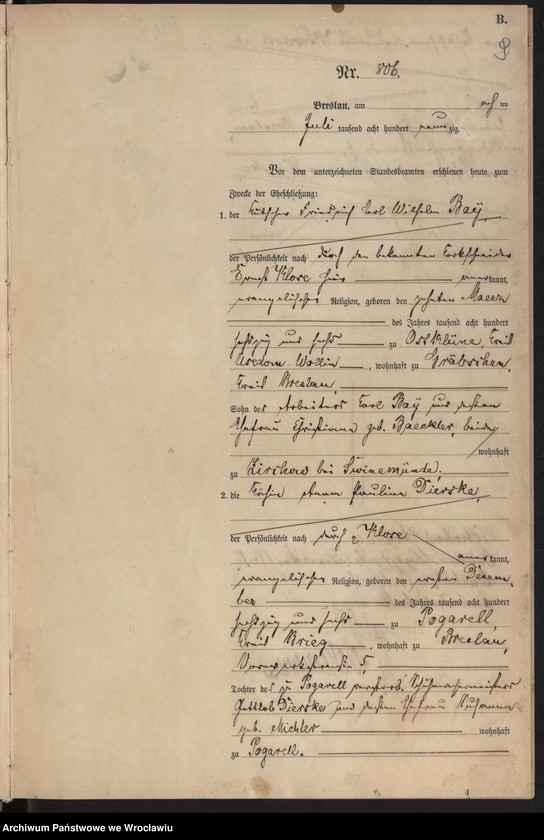 B.
9
Nr. 806.
Breslau, am ten
Juli tausend acht hundert neunzig.
Vor dem unterzeichneten Standesbeamten erschienen heute zum
Zwecke der Eheschließung:
1. der Kutscher Friedrich Carl Wilhelm Bay,
der Persönlichkeit nach durch den bekannten Korkschneider
Ernst Klose hier anerkannt,
evangelischer Religion, geboren den zehnten Maerz
des Jahres tausend acht hundert
sechszig und sechs zu Ostklüne, Kreis
Usedom-Wollin, wohnhaft zu Gräbschen,
Kreis Breslau,
Sohn des Arbeiters Carl Bay und dessen
Ehefrau Christiane geb. Baeckler, beide
wohnhaft
zu Zirchow bei Swinemünde.
2. die Köchin Anna Pauline Dierske,
der Persönlichkeit nach durch Klose
anerkannt,
evangelischer Religion, geboren den ersten Dezem-
ber des Jahres tausend acht hundert
sechszig und sechs zu Pogarell,
Kreis Brieg, wohnhaft zu Breslau,
Vorwerkstraße 5,
Tochter des zu Pogarell verstorb. Schuhmachermeisters
Gottlob Dierske und dessen Ehefrau Susanna
geb. Michler wohnhaft
zu Pogarell.
4
Archiwum Państwowe we Wrocławiu